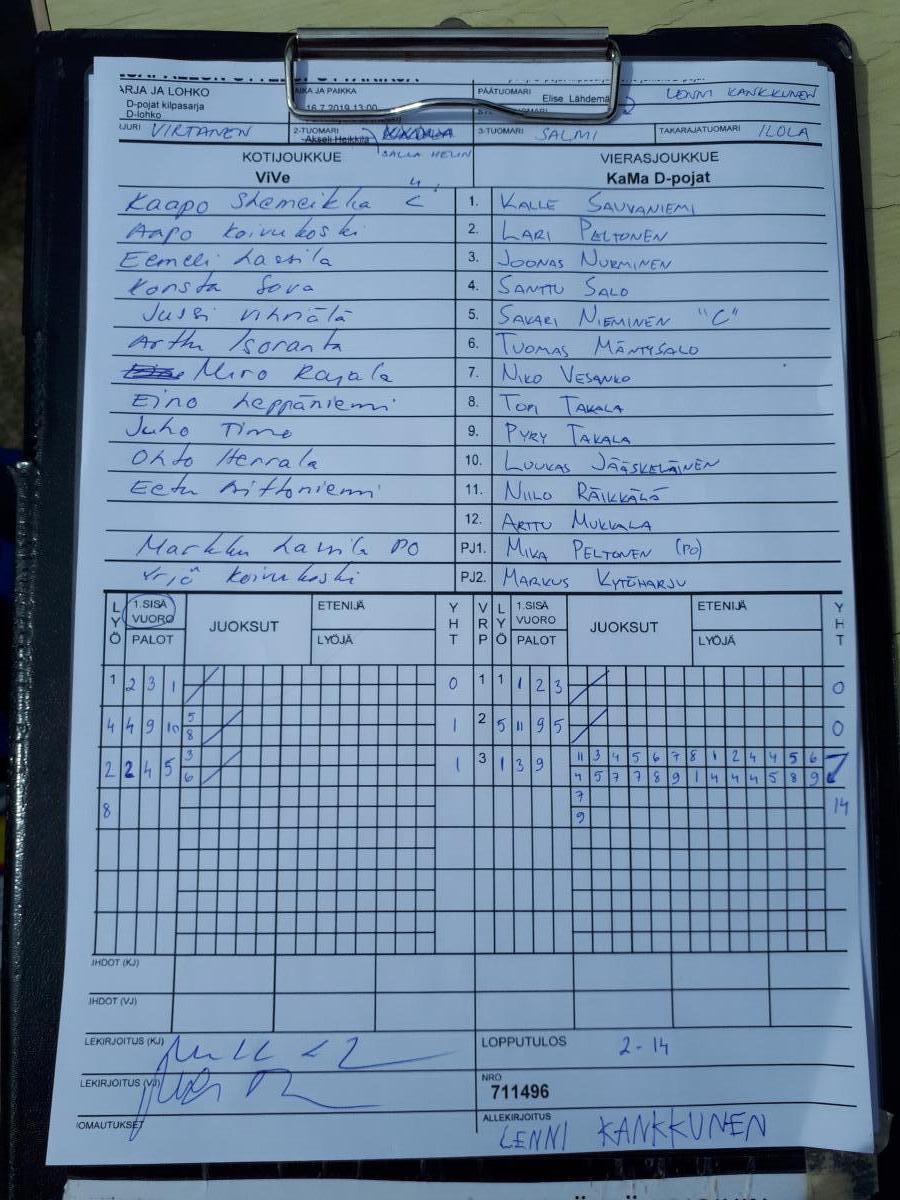 ARJA JA LOHKO AIKA JA PAIKKA PÄÄTUOMARI LENNI KANKKUNEN
D-pojat kilpasarja 16.7.2019 13:00 Elise Lähdemä
D-lohko
VIRTANEN 2-TUOMARI Akseli Heikkilä 3-TUOMARI SALMI TAKARAJATUOMARI ILOLA
SALLA HELIN
KOTIJOUKKUE VIERASJOUKKUE
ViVe KaMa D-pojat
Kaapo Shemeikka C 1. KALLE SAUVANIEMI
Aapo Koivukoski 2. LARI PELTONEN
Eemeli Lassila 3. JOONAS NURMINEN
Konsta Sova 4. SANTTU SALO
Jussi Vihriälä 5. SAKARI NIEMINEN "C"
Arttu Isoranta 6. TUOMAS MÄNTYSALO
Miro Rajala 7. NIKO VESANKO
Eino Leppäniemi 8. TOPI TAKALA
Juho Timo 9. PYRY TAKALA
Ohto Herrala 10. LUUKAS JÄÄSKELÄINEN
Eetu Aittoniemi 11. NIILO RÄIKKÄLÄ
12. ARTTU MUKKALA
Markku Lassila PO PJ1. MIKA PELTONEN (PO)
Yrjö Koivukoski PJ2. MARKUS KYTÖHARJU
LYÖ 1.SISÄ VUORO JUOKSUT ETENIJÄ YHT VRP LYÖ 1.SISÄ VUORO JUOKSUT ETENIJÄ YHT
PALOT LYÖJÄ PALOT LYÖJÄ
1 2 3 1 0 1 1 1 2 3 0
4 4 9 10 5 1 2 5 11 9 5 0
8
2 2 4 5 3 1 3 1 3 9 11 3 4 5 6 7 8 1 2 4 4 5 6
6 4 5 7 7 8 9 1 4 4 4 5 8 9
8 7 14
9
JHDOT (KJ)
JHDOT (VJ)
LEKIRJOITUS (KJ) LOPPUTULOS 2-14
LEKIRJOITUS (VJ) NRO
711496
OMAUTUKSET ALLEKIRJOITUS
LENNI KANKKUNEN